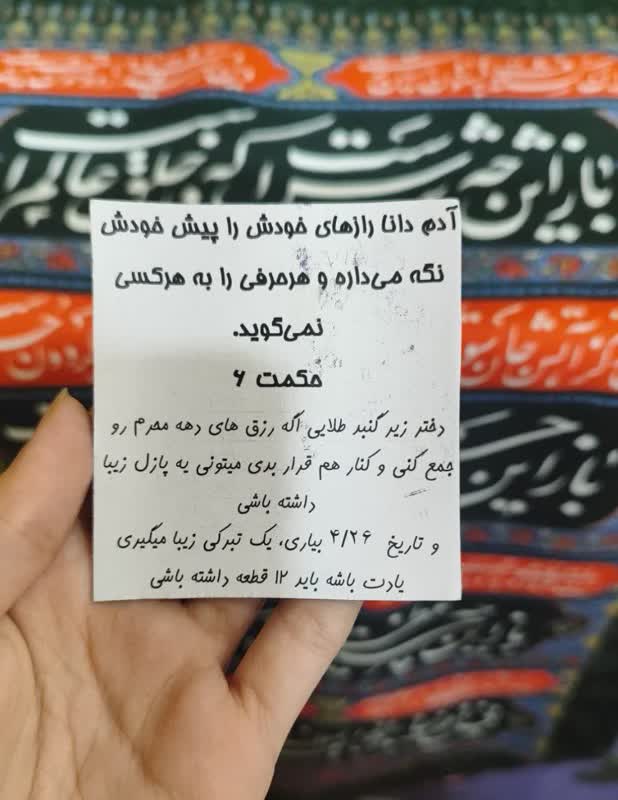 باز این چه شورش است که در خلق عالم است
آدم دانا رازهای خودش را پیش خودش
نگه می‌داره و هرحرفی را به هرکسی
نمی‌گوید.
حکمت ۶
دختر زیر گنبد طلایی اگه رزق های دهه محرم رو
جمع کنی و کنار هم قرار بدی میتونی یه پازل زیبا
داشته باشی
و تاریخ ۴/۲۶ بیاری، یک تبرکی زیبا میگیری
یادت باشه باید ۱۲ قطعه داشته باشی
باز این